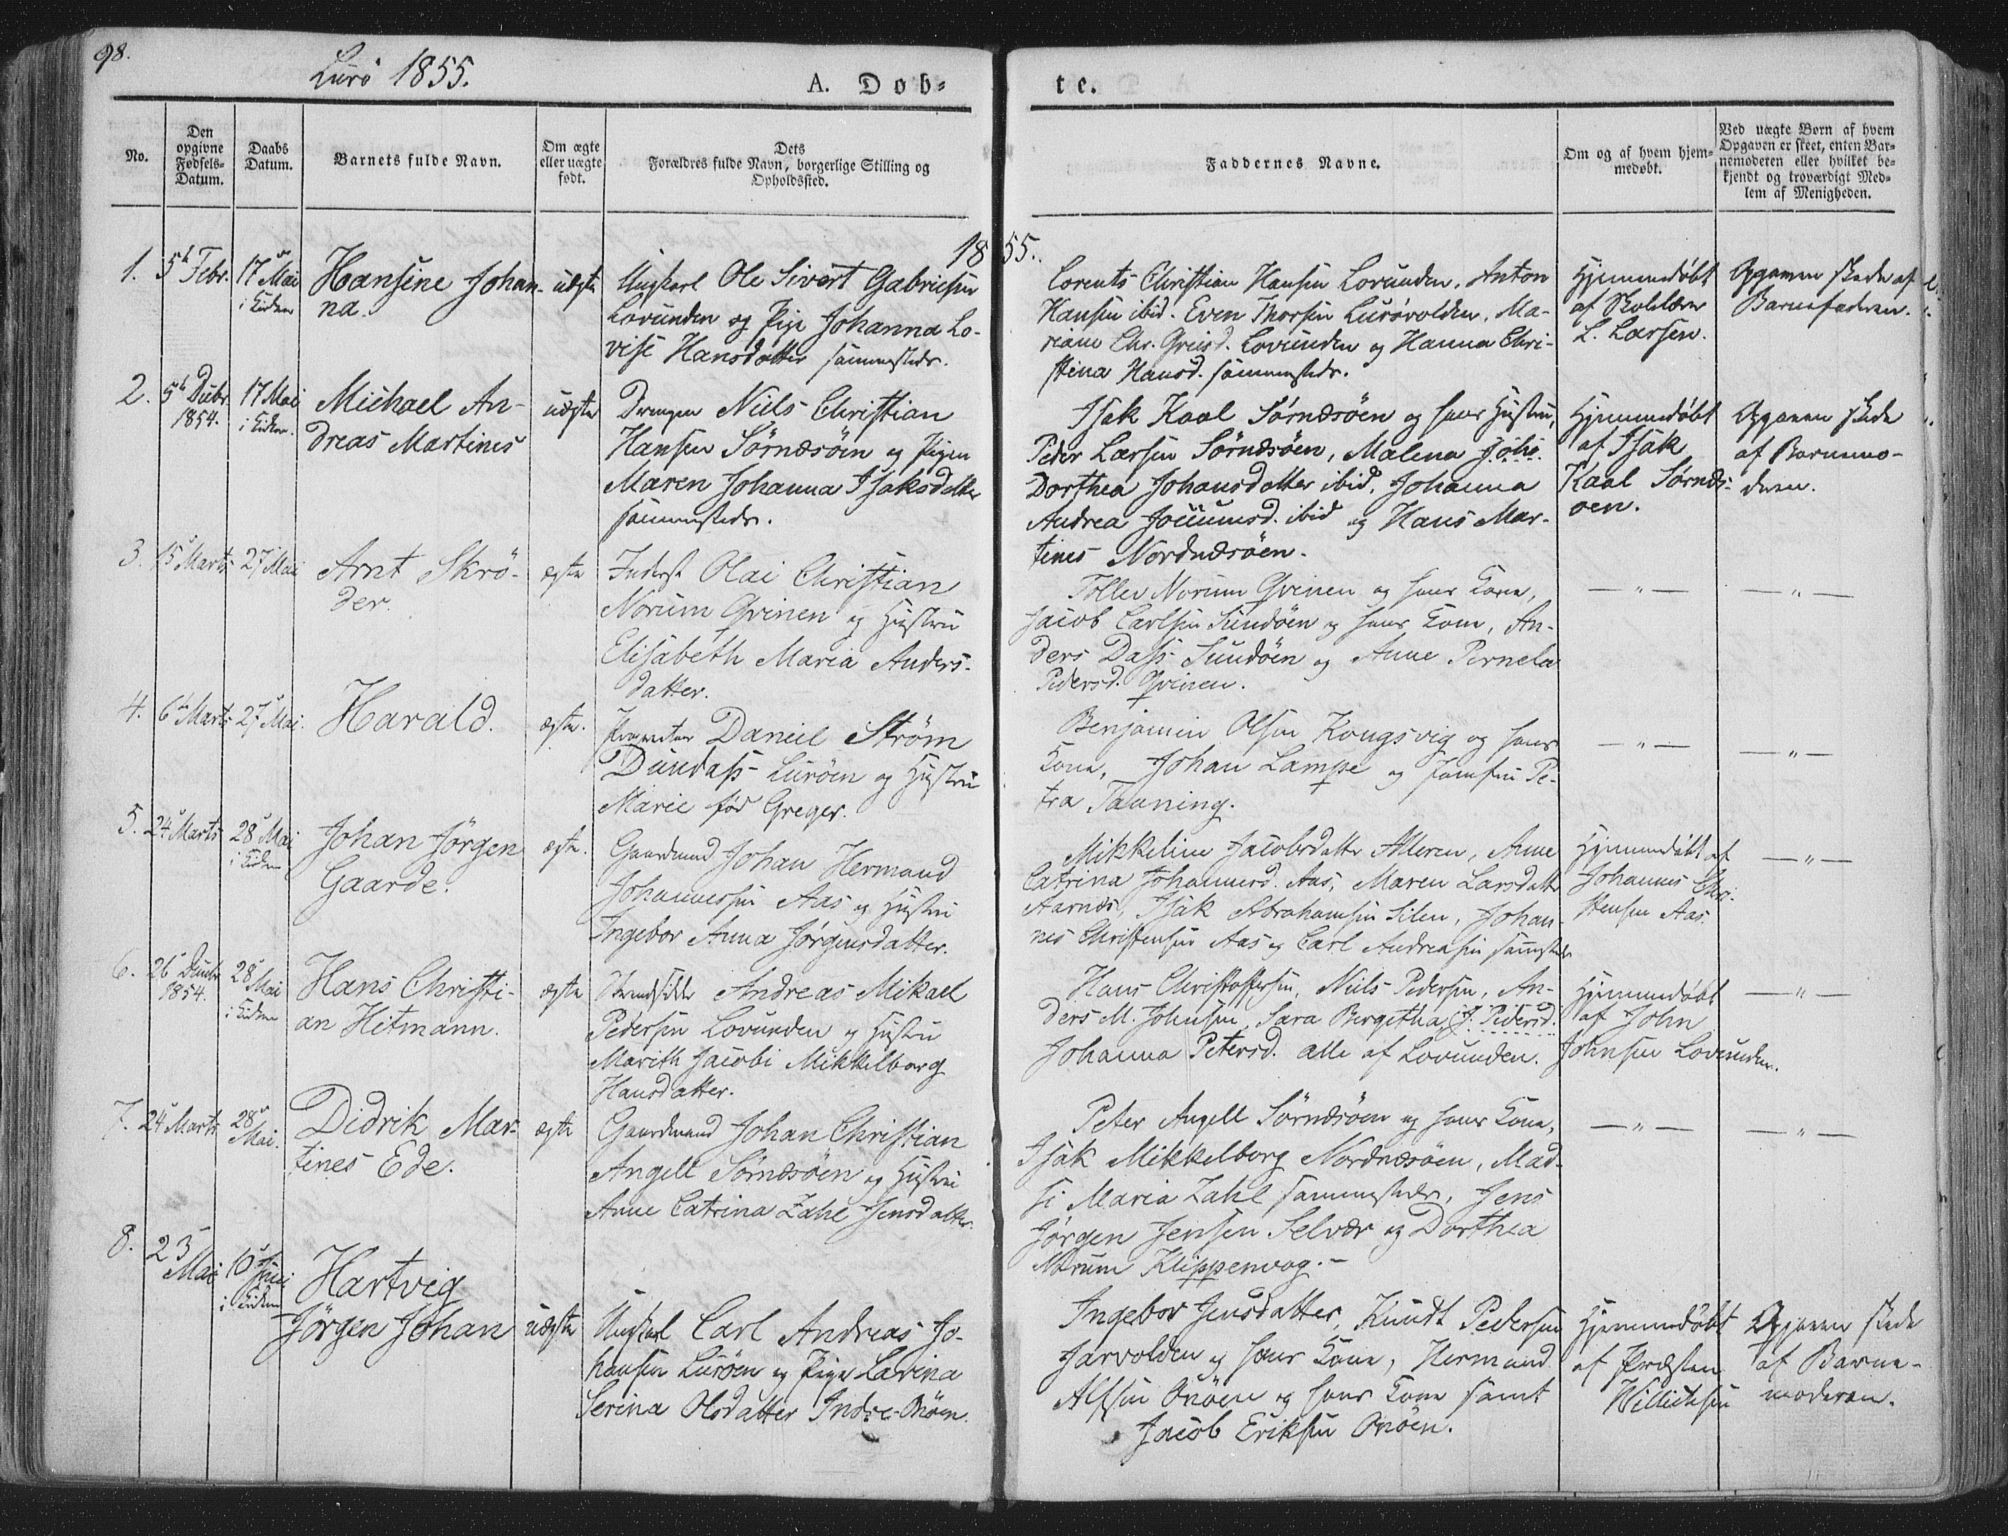 98.
Lurö 1855.
A. Døb-
te.
No.
Den opgivne Fødsels-Datum.
Daabs Datum.
Barnets fulde Navn.
Om ægte eller uægte født.
Dets Forældres fulde Navn, borgerlige Stilling og Opholdssted.
Faddernes Navne.
Om og af hvem hjem-medøbt.
Ved uægte Børn af hvem Opgaven er skeet, enten Bar-nemoderen eller hvilket be-kjendt og troværdigt Med-lem af Menigheden.
1855.
1. 5 Febr. 17 Mai i Kirken
Hansine Johan-
na.
uægte
Ungkarl Ole Sivert Gabrielsen
Lovunden og Pige Johanna Lo-
vise Hansdatter sammesteds.
Lorents Christian Hansen Lovunden, Anton
Hansen ibid. Even Thorsen Lurövolden, Ma-
riane Chr. Lovunden og Hanna Chri-
stina Hansd. sammesteds.
Hjemmedøbt
af Skolelærer
L. Larsen.
Opgaven skede af
Barnefaderen.
2. 5 Decbr. 1854. 17 Mai i Kirken.
Michael An-
dreas Martines
uægte
Drengen Niels Christian
Hansen Sörnæsöen og Pigen
Maren Johanna Isaksdatter
sammesteds.
Isak Kaal Sörnæsöen og hans Hustru,
Peder Larsen Sörnæsöen, Malena
Dorthea Johansdatter ibid, Johanna
Andrea Jocumsd. ibid og Hans Mar-
tines Nordnæsöen.
Hjemmedøbt
af Isak
Kaal Sörnæs-
öen.
Opgaven skede
af Barnemo-
deren.
3. 15 Marts 27 Mai
Arnt Skrö-
der.
ægte
Inderst Olai Christian
Norum Qvinen og Hustru
Elisabeth Maria Anders-
datter.
Toller Norum Qvinen og hans Kone,
Jacob Carlsen Sundöen og hans Kone, An-
ders Dass Sundöen og Anne Pernela
Pedersd. Qvinen.
— " —
— " —
4. 6 Marts 27 Mai.
Harald.
ægte.
Daniel Ström
Dundass Luröen og Hustru
Marie född Greger.
Benjamin Olsen Kongsvig og hans
Kone, Johan Lampe og Jomfru Pe-
tra Tanning.
— " —
— " —
5. 24 Marts 28 Mai i Kirken
Johan Jörgen
Gaarde.
ægte.
Gaardmand Johan Hermand
Johannessen Aas og Hustru
Ingebor Anna Jörgensdatter.
Mikkeline Jacobsdatter Alleren, Anne
Catrina Johannesd. Aas, Maren Larsdatter
Aarnæs, Isak Abrahamsen Silen, Johan-
nes Christensen Aas og Carl Andreasen sammesteds
Hjemmedøbt af
Johannes Chri-
stensen Aas.
— " —
6. 26 Decbr. 1854. 28 Mai i Kirken
Hans Christi-
an Hitmann.
ægte
Strandsidder Andreas Mikael
Pedersen Lovunden og Hustru
Marith Jacobi Mikkelborg
Hansdatter.
Hans Christoffersen, Niels Pedersen, An-
ders M. Johnsen, Sara Bergitha J. Pedersd.
Johanna Petersd. alle af Lovunden.
Hjemmedøbt
af John
Johnsen Lovunden.
— " —
7. 24 Marts 28 Mai.
Didrik Mar-
tines Ede.
ægte
Gaardmand Johan Christian
Angell Sörnæsöen og Hustru
Anne Catrina Zahl Jensdatter.
Peter Angell Sörnæsöen og hans Kone,
Isak Mikkelborg Nordnæsöen, Mad-
si Maria Zahl sammesteds, Jens
Jörgen Jensen Selvær og Dorthea
Norum Klippenvog. —
— " —
— " —
8. 23 Mai 10 Juni i Kirken
Hartvig
Jörgen Johan
uægte
Ungkarl Carl Andreas Jo-
hansen Luröen og Pige Lavina
Serina Olsdatter Indre-Onöen.
Ingebor Jensdatter, Knudt Pedersen
Jarvolden og hans Kone, Hermand
Alfsen Onöen og hans Kone samt
Jacob Eriksen Onöen.
Hjemmedøbt
af Præsten
Willichsen
Opgaven skede
af Barne-
moderen.